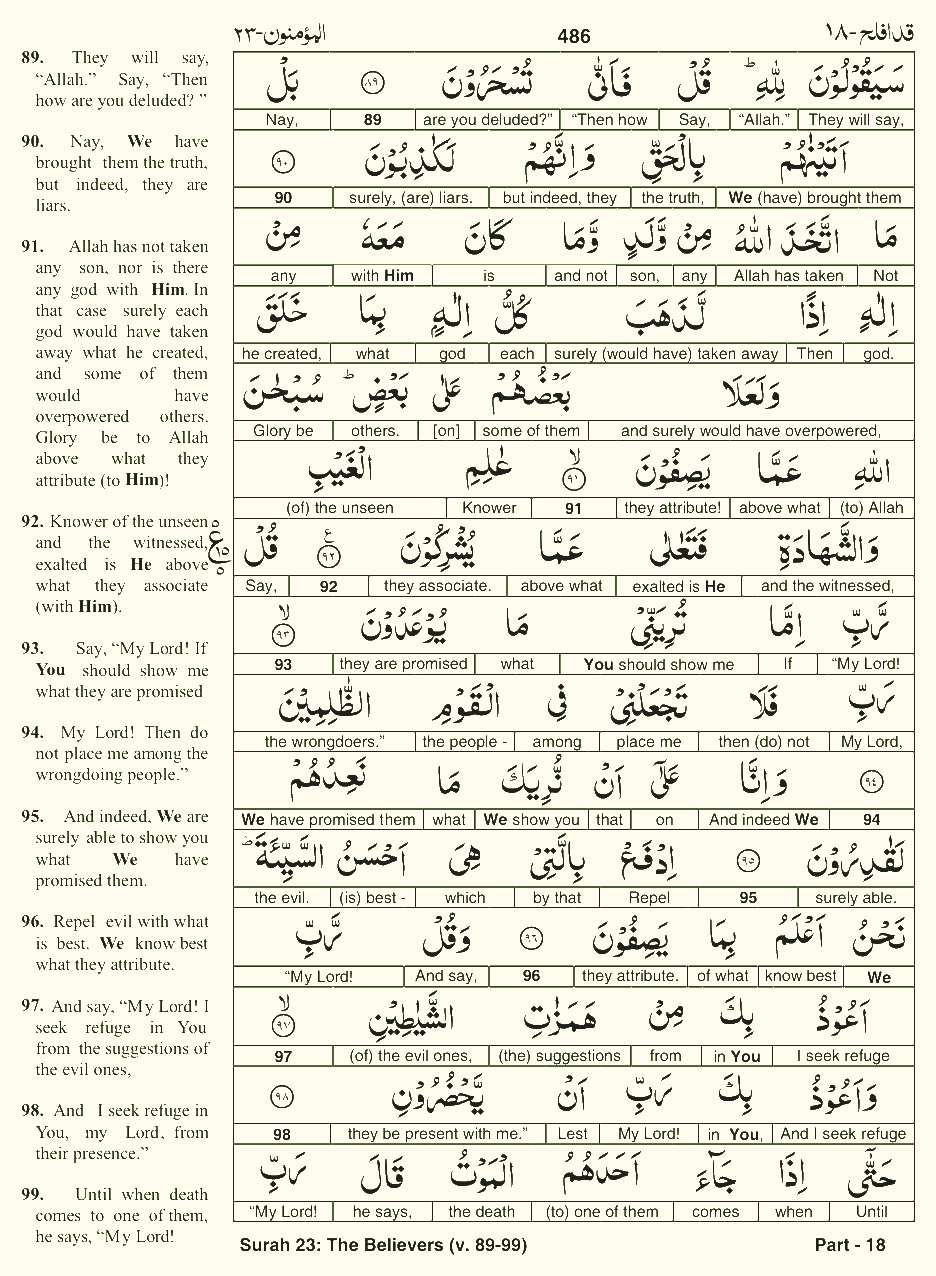 المؤمنون-٢٣ 486 قد افلح-١٨
89. They will say,
“Allah.” Say, “Then
how are you deluded? ”
90. Nay, We have
brought them the truth,
but indeed, they are
liars.
91. Allah has not taken
any son, nor is there
any god with Him. In
that case surely each
god would have taken
away what he created,
and some of them
would have
overpowered others.
Glory be to Allah
above what they
attribute (to Him)!
92. Knower of the unseen
and the witnessed,
exalted is He above
what they associate
(with Him).
93. Say, “My Lord! If
You should show me
what they are promised
94. My Lord! Then do
not place me among the
wrongdoing people.”
95. And indeed, We are
surely able to show you
what We have
promised them.
96. Repel evil with what
is best. We know best
what they attribute.
97. And say, “My Lord! I
seek refuge in You
from the suggestions of
the evil ones,
98. And I seek refuge in
You, my Lord, from
their presence.”
99. Until when death
comes to one of them,
he says, “My Lord!
سَيَقُوْلُوْنَ لِلّٰهِ ؕ قُلْ فَاَنّٰى تُسْحَرُوْنَ ﴿٨٩﴾ بَلْ
Nay, 89 are you deluded?” “Then how Say, “Allah.” They will say,
اَتَيْنٰهُمْ بِالْحَقِّ وَاِنَّهُمْ لَكٰذِبُوْنَ ﴿٩٠﴾
90 surely, (are) liars. but indeed, they the truth, We (have) brought them
مَا اتَّخَذَ اللّٰهُ مِنْ وَّلَدٍ وَّمَا كَانَ مَعَهٗ مِنْ
any with Him is and not son, any Allah has taken Not
اِلٰهٍ اِذًا لَّذَهَبَ كُلُّ اِلٰهٍۭ بِمَا خَلَقَ
he created, what god each surely (would have) taken away Then god.
وَلَعَلَا بَعْضُهُمْ عَلٰى بَعْضٍ ؕ سُبْحٰنَ
Glory be others. [on] some of them and surely would have overpowered,
اللّٰهِ عَمَّا يَصِفُوْنَ ﴿٩١﴾ۙ عٰلِمِ الْغَيْبِ
(of) the unseen Knower 91 they attribute! above what (to) Allah
وَالشَّهَادَةِ فَتَعٰلٰى عَمَّا يُشْرِكُوْنَ ﴿٩٢﴾ قُلْ
Say, 92 they associate. above what exalted is He and the witnessed,
رَّبِّ اِمَّا تُرِيَنِّيْ مَا يُوْعَدُوْنَ ﴿٩٣﴾ۙ
93 they are promised what You should show me If “My Lord!
رَبِّ فَلَا تَجْعَلْنِيْ فِي الْقَوْمِ الظّٰلِمِيْنَ
the wrongdoers.” the people - among place me then (do) not My Lord,
﴿٩٤﴾ وَاِنَّا عَلٰٓى اَنْ نُّرِيَكَ مَا نَعِدُهُمْ
We have promised them what We show you that on And indeed We 94
لَقٰدِرُوْنَ ﴿٩٥﴾ اِدْفَعْ بِالَّتِيْ هِيَ اَحْسَنُ السَّيِّئَةَ ؕ
the evil. (is) best - which by that Repel 95 surely able.
نَحْنُ اَعْلَمُ بِمَا يَصِفُوْنَ ﴿٩٦﴾ وَقُلْ رَّبِّ
“My Lord! And say, 96 they attribute. of what know best We
اَعُوْذُ بِكَ مِنْ هَمَزٰتِ الشَّيٰطِيْنِ ﴿٩٧﴾ۙ
97 (of) the evil ones, (the) suggestions from in You I seek refuge
وَاَعُوْذُ بِكَ رَبِّ اَنْ يَّحْضُرُوْنِ ﴿٩٨﴾
98 they be present with me.” Lest My Lord! in You, And I seek refuge
حَتّٰٓى اِذَا جَآءَ اَحَدَهُمُ الْمَوْتُ قَالَ رَبِّ
“My Lord! he says, the death (to) one of them comes when Until
Surah 23: The Believers (v. 89-99) Part - 18